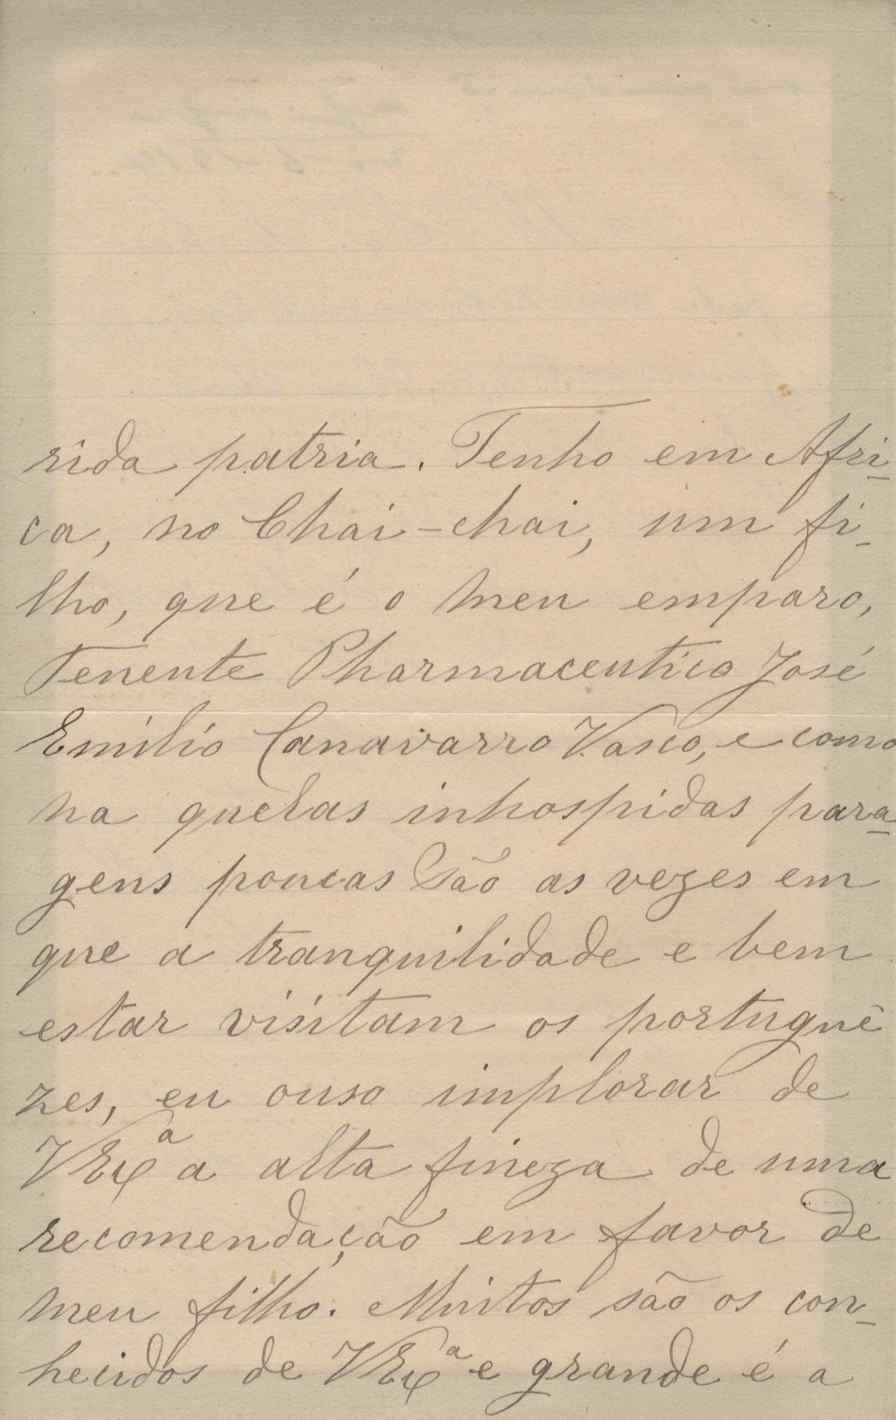 rida patria. Tenho em Afri-
ca, no Chai-chai, um fi-
lho, que é o meu emparo,
Tenente Pharmaceutico José
Emilio Canavarro Vasco, e como
na quelas inhospidas para-
gens poucas são as vezes em
que a tranquilidade e bem
estar visitam os portuguê
zes, eu ouso implorar de
VExª a alta fineza de uma
recomendação em favor de
meu filho. Muitos são os con-
hecidos de VExª e grande é a